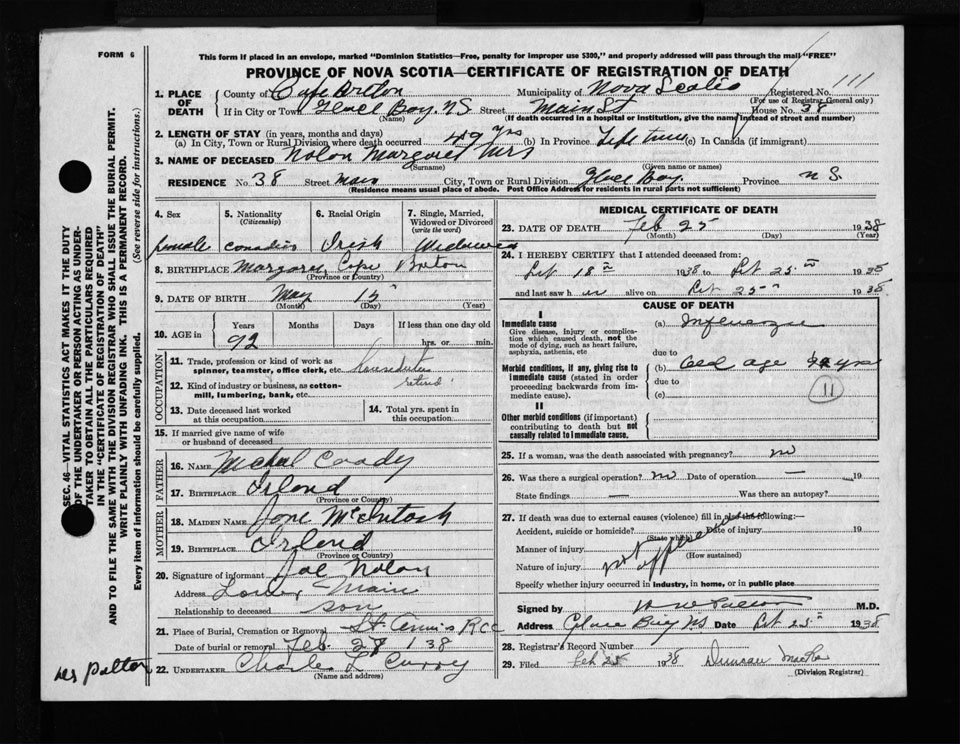 FORM 6
This form if placed in an envelope, marked "Dominion Statistics—Free, penalty for improper use $300," and properly addressed will pass through the mail "FREE"
PROVINCE OF NOVA SCOTIA—CERTIFICATE OF REGISTRATION OF DEATH
1. PLACE OF DEATH County of Cape Breton Municipality of Nova Scotia Registered No. 111
(For use of Registrar General only)
If in City or Town Glace Bay, NS Street Main St House No. 38
(Name) (If death occurred in a hospital or institution, give the name instead of street and number)
2. LENGTH OF STAY (in years, months and days)
(a) In City, Town or Rural Division where death occurred 49 yrs (b) In Province Life time (c) In Canada (if immigrant)
3. NAME OF DECEASED Nolan Margaret Mrs
(Surname) (Given name or names)
RESIDENCE No. 38 Street Main City, Town or Rural Division Glace Bay. Province N S.
(Residence means usual place of abode. Post Office Address for residents in rural parts not sufficient)
4. Sex 5. Nationality (Citizenship) 6. Racial Origin 7. Single, Married, Widowed or Divorced (write the word)
female Canadian Irish Widowed
8. BIRTHPLACE Margaree, Cape Breton
(Province or Country)
9. DATE OF BIRTH May 15
(Month) (Day) (Year)
10. AGE in Years Months Days If less than one day old
92 hrs. or min.
OCCUPATION
11. Trade, profession or kind of work as spinner, teamster, office clerk, etc. houseduties
12. Kind of industry or business, as cotton-mill, lumbering, bank, etc. retired
13. Date deceased last worked at this occupation
14. Total yrs. spent in this occupation
15. If married give name of wife or husband of deceased
FATHER
16. NAME Micheal Coady
17. BIRTHPLACE Irland
(Province or Country)
MOTHER
18. MAIDEN NAME Jane McIntosh
19. BIRTHPLACE Irland
(Province or Country)
20. Signature of informant Joe Nolan
Address Lower Main
Relationship to deceased son
21. Place of Burial, Cremation or Removal St. Annis RCC
Date of burial or removal Feb. 28 1 38
22. UNDERTAKER Charles L Curry
(Name and address)
MEDICAL CERTIFICATE OF DEATH
23. DATE OF DEATH Feb 25 1938
(Month) (Day) (Year)
24. I HEREBY CERTIFY that I attended deceased from:
18 1938 to 25 19
and last saw her alive on 25 1938
CAUSE OF DEATH
I
Immediate cause
Give disease, injury or complication which caused death, not the mode of dying, such as heart failure, asphyxia, asthenia, etc
(a) Influenza
due to
Morbid conditions, if any, giving rise to immediate cause (stated in order proceeding backwards from immediate cause).
(b) Old age
due to
(c) 11
II
Other morbid conditions (if important) contributing to death but not causally related to immediate cause.
25. If a woman, was the death associated with pregnancy? no
26. Was there a surgical operation? no Date of operation — 19
State findings — Was there an autopsy?
27. If death was due to external causes (violence) fill in also the following:—
Accident, suicide or homicide? Date of injury 19
(State which)
Manner of injury
(How sustained)
Nature of injury
Specify whether injury occurred in industry, in home, or in public place
Signed by M.D.
Address Glace Bay NS Date 25 1938
28. Registrar's Record Number
29. Filed Feb 25 1938 Duncan
(Division Registrar)
SEC. 46—VITAL STATISTICS ACT MAKES IT THE DUTY OF THE UNDERTAKER OR PERSON ACTING AS UNDERTAKER TO OBTAIN ALL THE PARTICULARS REQUIRED IN THE "CERTIFICATE OF REGISTRATION OF DEATH"
AND TO FILE THE SAME WITH THE DIVISION REGISTRAR WHO SHALL ISSUE THE BURIAL PERMIT.
WRITE PLAINLY WITH UNFADING INK. THIS IS A PERMANENT RECORD.
Every item of information should be carefully supplied. (See reverse side for instructions.)